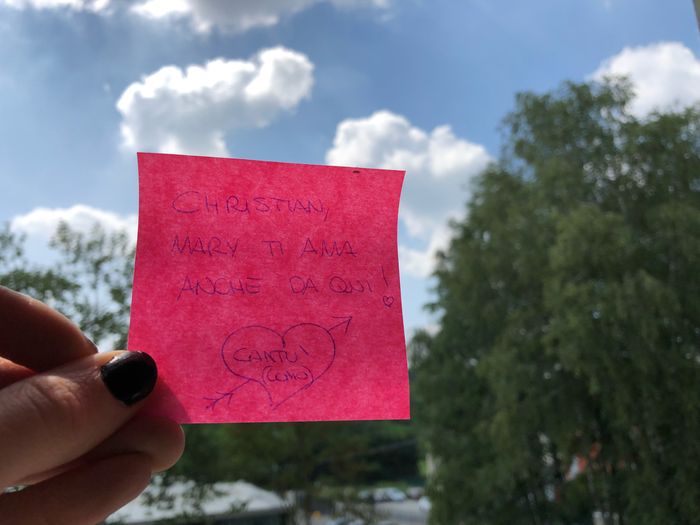 CHRISTIAN,
MARY TI AMA
ANCHE DA QUI!
CANTU'
(COMO)